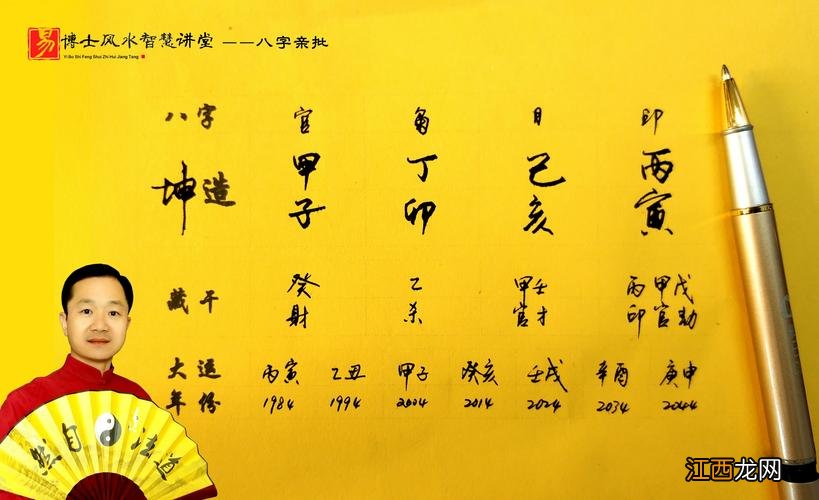 易 博士风水智慧讲堂 ——八字亲批
Yi Bo Shi Feng Shui Zhi Hui Jiang Tang
八字 官 枭 日 印
坤造 甲 丁 己 丙
子 卯 亥 寅
藏干 癸 乙 甲壬 丙甲戊
财 杀 官才 印官劫
大运 丙寅 乙丑 甲子 癸亥 壬戌 辛酉 庚申
年份 1984 1994 2004 2014 2024 2034 2044
然自法道
江西龙网